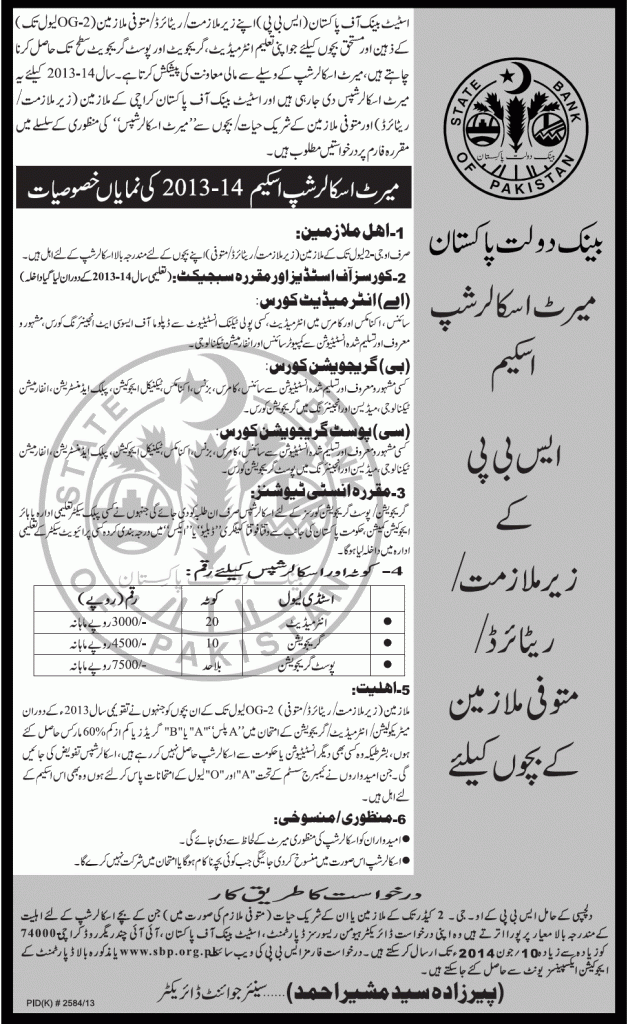 اسٹیٹ بینک آف پاکستان (ایس بی پی) اپنے زیر ملازمت/ریٹائرڈ/متوفی ملازمین (OG-2 لیول تک)
کے ذہین اور مستحق بچوں کیلئے جو اپنی تعلیم انٹر میڈیٹ، گریجویٹ اور پوسٹ گریجویٹ سطح تک حاصل کرنا
چاہتے ہیں، میرٹ اسکالر شپ کے وسیلے سے مالی معاونت کی پیشکش کرتا ہے۔ سال 14-2013 کیلئے یہ
میرٹ اسکالرشپس دی جارہی ہیں اور اسٹیٹ بینک آف پاکستان کراچی کے ملازمین (زیر ملازمت/
ریٹائرڈ) اور متوفی ملازمین کے شریک حیات/بچوں سے "میرٹ اسکالرشپس" کی منظوری کے سلسلے میں
مقررہ فارم پر درخواستیں مطلوب ہیں۔
STATE BANK OF PAKISTAN
بینک دولت پاکستان
بینک دولت پاکستان
میرٹ اسکالرشپ
اسکیم
ایس بی پی
کے
زیر ملازمت/
ریٹائرڈ/
متوفی ملازمین
کے بچوں کیلئے
میرٹ اسکالر شپ اسکیم 14-2013 کی نمایاں خصوصیات
1- اهل ملازمین:
صرف او جی-2 لیول تک کے ملازمین (زیر ملازمت/ریٹائرڈ/متوفی) اپنے بچوں کیلئے مندرجہ بالا اسکالرشپ کے لئے اہل ہیں۔
2- کورسز آف اسٹڈیز اور مقررہ سبجیکٹ: (تعلیمی سال 14-2013 کے دوران لیا گیا داخلہ)
(اے) انٹر میڈیٹ کورس:
سائنس، اکنامکس اور کامرس میں انٹرمیڈیٹ، کسی پولی ٹیکنک انسٹیٹیوٹ سے ڈپلومہ آف ایسوسی ایٹ انجینئرنگ کورس، مشہور و
معروف اور تسلیم شدہ انسٹیٹیوشن سے کمپیوٹر سائنس اور انفارمیشن ٹیکنالوجی۔
(بی) گریجویشن کورس:
کسی مشہور و معروف اور تسلیم شدہ انسٹیٹیوشن سے سائنس، کامرس، بزنس، اکنامکس، ٹیکنیکل ایجوکیشن، پبلک ایڈمنسٹریشن، انفارمیشن
ٹیکنالوجی، میڈیسن اور انجینئرنگ میں گریجویشن کورس۔
(سی) پوسٹ گریجویشن کورس:
کسی مشہور و معروف اور تسلیم شدہ انسٹیٹیوشن سے سائنس، کامرس، بزنس، اکنامکس، ٹیکنیکل ایجوکیشن، پبلک ایڈمنسٹریشن، انفارمیشن
ٹیکنالوجی، میڈیسن اور انجینئرنگ میں پوسٹ گریجویشن کورس۔
3- مقررہ انسٹی ٹیوشنز:
گریجویشن/پوسٹ گریجویشن کورسز کے لئے اسکالرشپس صرف ان طلبہ کو دی جائے گی جنہوں نے کسی پبلک سیکٹر تعلیمی ادارہ یا ہائر
ایجوکیشن کمیشن، حکومت پاکستان کی جانب سے وقتاً فوقتاً کیٹگری "ڈبلیو" یا "ایکس" میں درجہ بندی کردہ کسی پرائیویٹ سیکٹر کے تعلیمی
ادارہ میں داخلہ لیا ہوگا۔
4- کوٹہ اور اسکالرشپس کیلئے رقم:
اسٹڈی لیول کوٹہ رقم (روپے)
● انٹرمیڈیٹ 20 3000/- روپے ماہانہ
● گریجویشن 10 4500/- روپے ماہانہ
● پوسٹ گریجویشن بلاحد 7500/- روپے ماہانہ
5- اهلیت:
ملازمین (زیر ملازمت/ریٹائرڈ/متوفی) OG-2 لیول تک کے ان بچوں کو جنہوں نے تقویمی سال 2013ء کے دوران
میٹریکولیشن/انٹرمیڈیٹ/گریجویشن کے امتحان میں "A پلس"، "A" یا "B" گریڈز یا کم از کم 60% مارکس حاصل کئے
ہوں، بشرطیکہ وہ کسی بھی دیگر انسٹیٹیوشن یا حکومت سے اسکالرشپ حاصل نہیں کررہے ہیں، اسکالرشپس تفویض کی جائیں
گی۔ جن امیدواروں نے کیمبرج سسٹم کے تحت "A" اور "O" لیول کے امتحانات پاس کرلئے ہوں وہ بھی اس اسکیم کے
لئے اہل ہیں۔
6- منظوری/منسوخی:
● امیدواران کو اسکالرشپ کی منظوری میرٹ کے لحاظ سے دی جائے گی۔
● اسکالرشپ اس صورت میں منسوخ کردی جائیگی جب کوئی بچہ ناکام ہوگا یا امتحان میں شرکت نہیں کرے گا۔
درخواست کا طریق کار
دلچسپی کے حامل ایس بی پی کے او۔جی۔2 کیڈر تک کے ملازمین یا ان کے شریک حیات (متوفی ملازم کی صورت میں) جن کے بچے اسکالرشپ کے لئے اہلیت
کے مندرجہ بالا معیار پر پورا اترتے ہیں وہ اپنی درخواست ڈائریکٹر ہیومن ریسورسز ڈپارٹمنٹ، اسٹیٹ بینک آف پاکستان، آئی آئی چندریگر روڈ کراچی-74000
کو زیادہ سے زیادہ 10/جون 2014ء تک ارسال کرسکتے ہیں۔ درخواست فارمز ایس بی پی کی ویب سائٹ www.sbp.org.pk یا مذکورہ بالا ڈپارٹمنٹ کے
ایجوکیشن ایکسپینسز یونٹ سے حاصل کئے جاسکتے ہیں۔
(پیرزادہ سید مشیر احمد) ...... سینئر جوائنٹ ڈائریکٹر
PID(K) # 2584/13